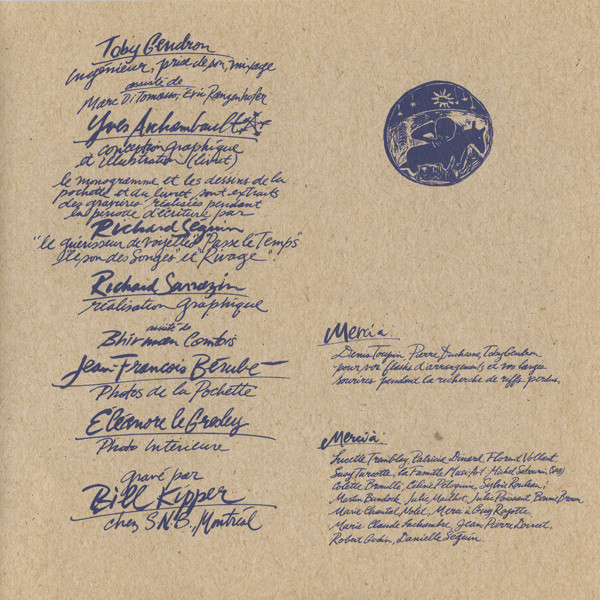 Toby Gendron
ingénieur, prise de son, mixage
assisté de
Marc DiTomasso, Eric Ranzenhofer
Yves Archambault
conception graphique
et illustration (livret)
le monogramme et les dessins de la
pochette et du livret, sont extraits
des gravures réalisées pendant
la période d'écriture par
Richard Séguin
"le guérisseur de voyelles" "Passe le Temps"
"le son des Songes" et "Rivage".
Richard Sarrazin
réalisation graphique
assisté de
Bhirman Comtois
Jean-François Bérubé
Photos de la Pochette
Eléanore le Gresley
Photo Intérieure
gravé par
Bill Kipper
chez S.N.B., Montréal
Merci à:
Denis Toupin, Pierre Duchesne, Toby Gendron
pour vos flashs d'arrangements et vos larges
sourires pendant la recherche de riffs perdus.
Merci à:
Lucette Tremblay, Patricia Dinard, Florent Vollant
Suzy Turcotte, la Famille Musi-Art, Michel Sabourin
Colette Brouillé, Céline Péloquin, Sylvie Rouleau,
Martin Burdock, Julie Mailhot, Julie Poissant, Bonnie Brown
Marie Chantal, Molet, Merci à Guy Rajotte
Marie Claude Lachambre, Jean-Pierre Doucet,
Robert Godin, Danielle Séguin.